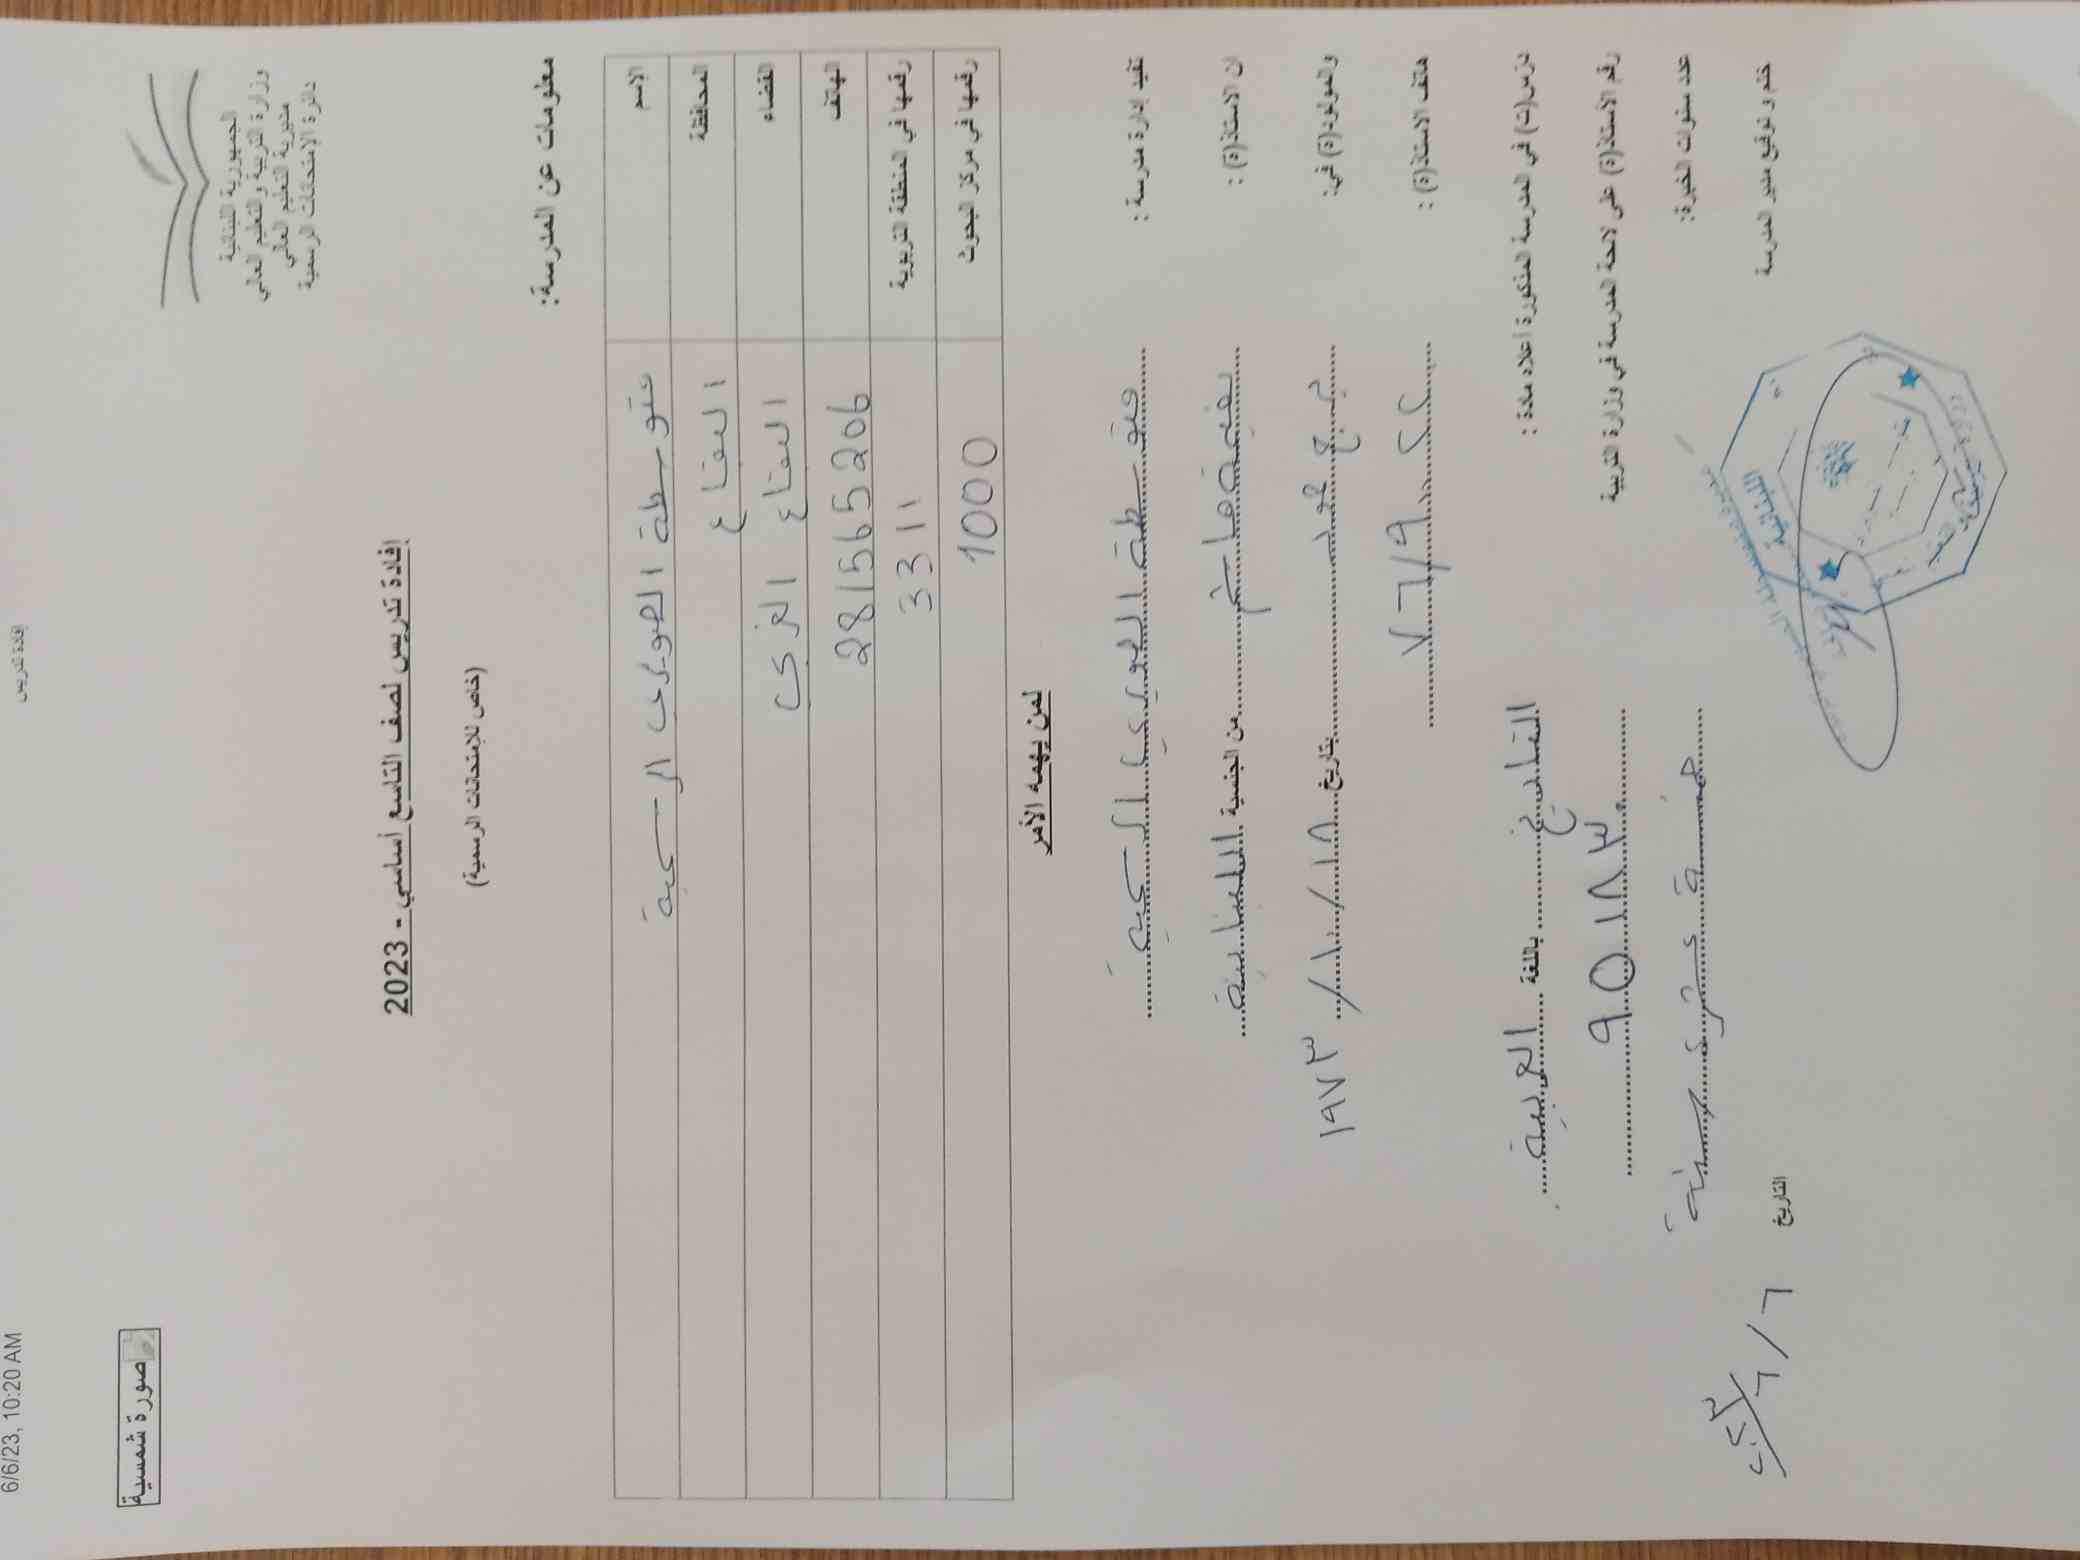 6/6/23, 10:20 AM
إفادة تدريس
صورة شمسية
الجمهورية اللبنانية
وزارة التربية والتعليم العالي
مديرية التعليم العالي
دائرة الإمتحانات الرسمية
إفادة تدريس لصف التاسع أساسي - 2023
(خاص للإمتحانات الرسمية)
معلومات عن المدرسة:
الإسم متوسطة الصويري الرسمية
المحافظة البقاع
القضاء البقاع الغربي
الهاتف 281565206
رقمها في المنطقة التربوية 3311
رقمها في مركز البحوث 1000
لمن يهمه الأمر
تفيد إدارة مدرسة : متوسطة الصويري الرسمية
ان الاستاذ(ة) : من الجنسية اللبنانية
والمولود(ة) في: بتاريخ ١٨/١٠/١٩٧٣
هاتف الاستاذ(ة) :
درس(ت) في المدرسة المذكورة أعلاه مادة : التاريخ باللغة العربية
رقم الاستاذ(ة) على لائحة المدرسة في وزارة التربية ٩٥١٨٣
عدد سنوات الخبرة: خمسة عشرة سنة
ختم و توقيع مدير المدرسة التاريخ ٦/٦/٢٠٢٣
اللبنانية